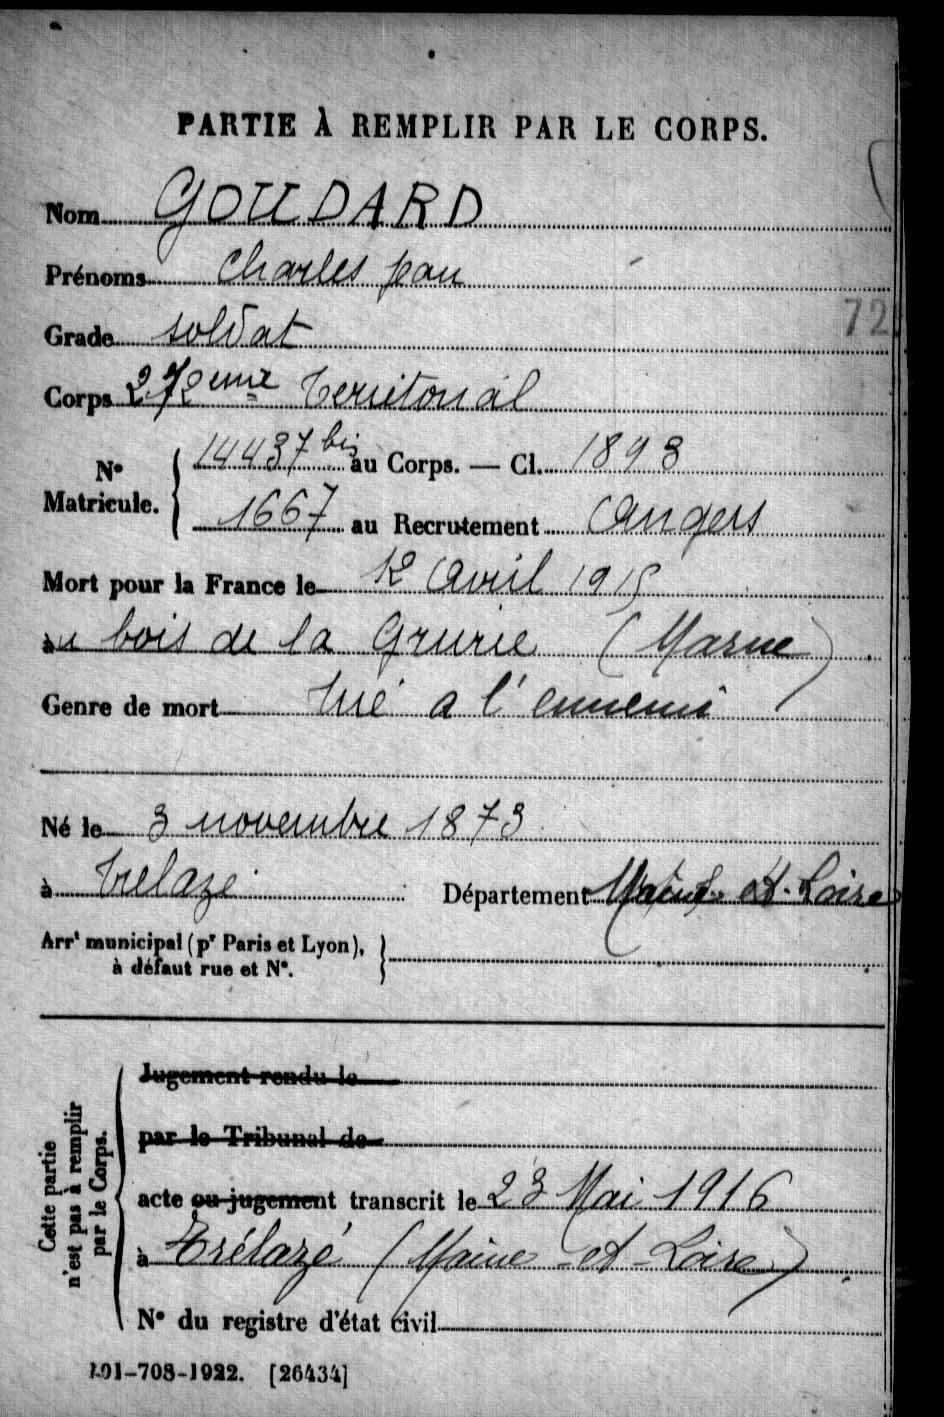 PARTIE À REMPLIR PAR LE CORPS.
Nom GOUDARD
Prénoms Charles Jean
72
Grade soldat
Corps 272eme Territorial
N° Matricule. 14437 bis au Corps. — Cl. 1893
1667 au Recrutement Angers
Mort pour la France le 12 Avril 1915
au bois de la Grurie (Marne)
Genre de mort tué a l'ennemi
Né le 3 novembre 1873
à Trelaze Département Maine-et-Loire
Arrt municipal (pr Paris et Lyon),
à défaut rue et N°.
Cette partie
n'est pas à remplir
par le Corps.
Jugement rendu le
par le Tribunal de
acte ou jugement transcrit le 23 Mai 1916
à Trélazé (Maine-et-Loire)
N° du registre d'état civil
101-708-1922. [26434]